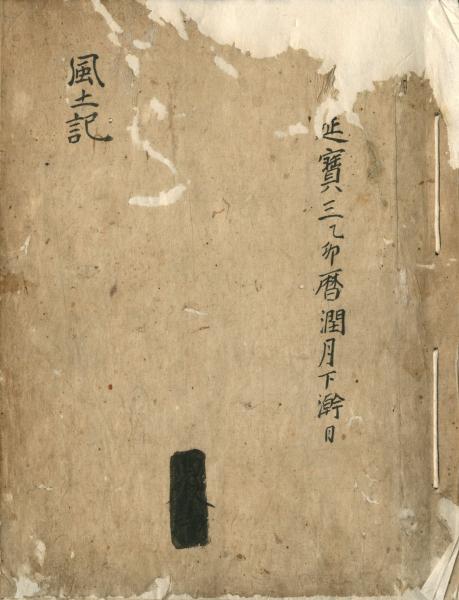 延寶八三乙卯暦潤月下澣日
風土記